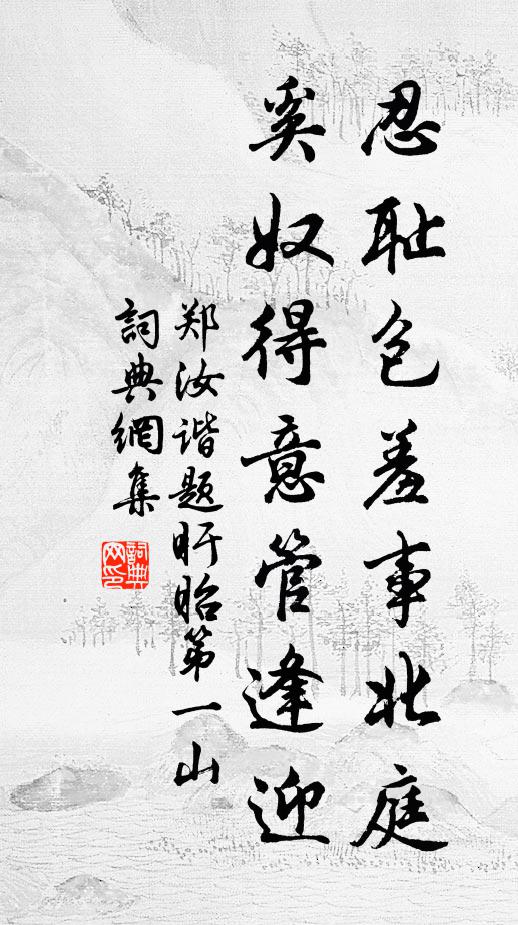 忍耻包羞事北庭
奚奴得意管逢迎
郑汝谐题盱眙第一山
詞典網集
詞典网印